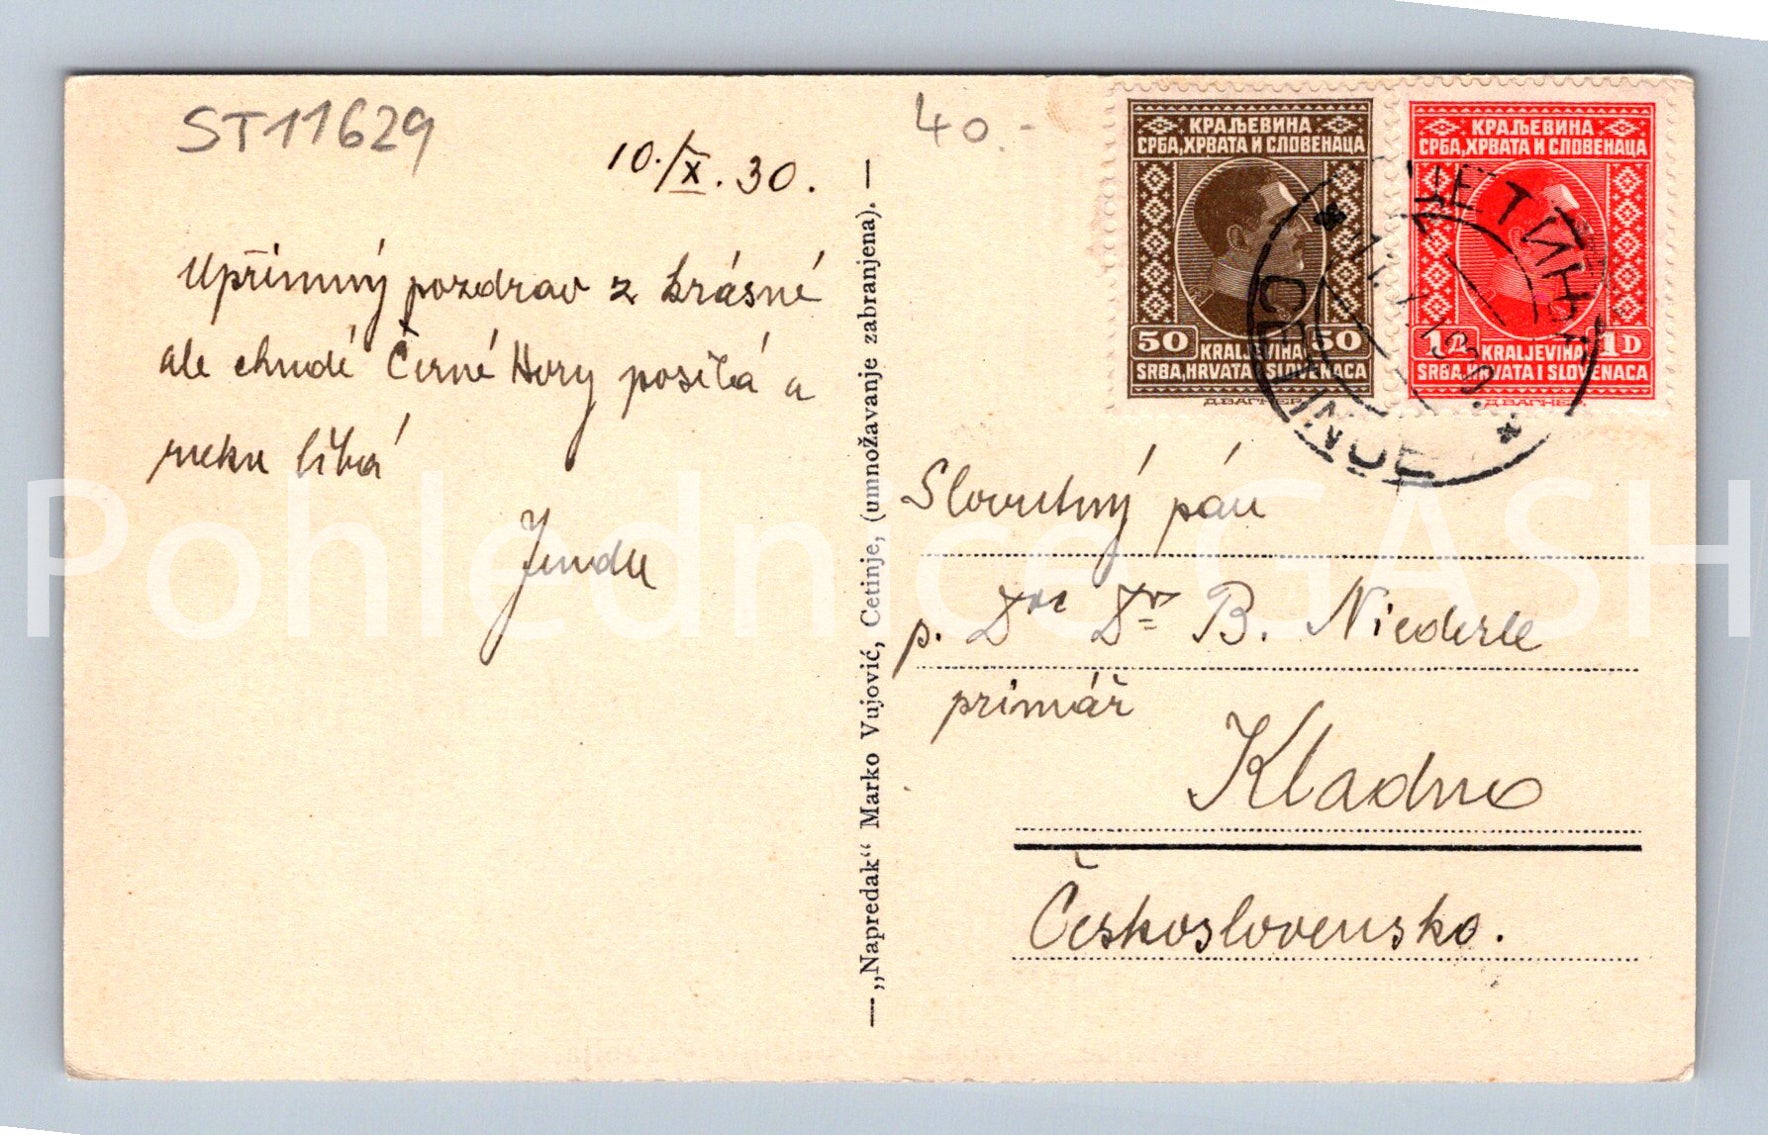 ST11629
10./X. 30.
Upřímný pozdrav z krásné
ale chudé Černé Hory posílá a
ruku líbá
Jenda
— „Napredak“ Marko Vujović, Cetinje, (umnožavanje zabranjena). —
40.-
КРАЉЕВИНА
СРБА, ХРВАТА И СЛОВЕНАЦА
50 50
KRALJEVINA
SRBA, HRVATA I SLOVENACA
Д.ВАГНЕР
КРАЉЕВИНА
СРБА, ХРВАТА И СЛОВЕНАЦА
1D 1D
KRALJEVINA
SRBA, HRVATA I SLOVENACA
Д.ВАГНЕР
ЦЕТИЊЕ
CETINJE
Slovutný pán
p. Dr Dr B. Niederle
primář
Kladno
Československo.
Pohlednice GASH